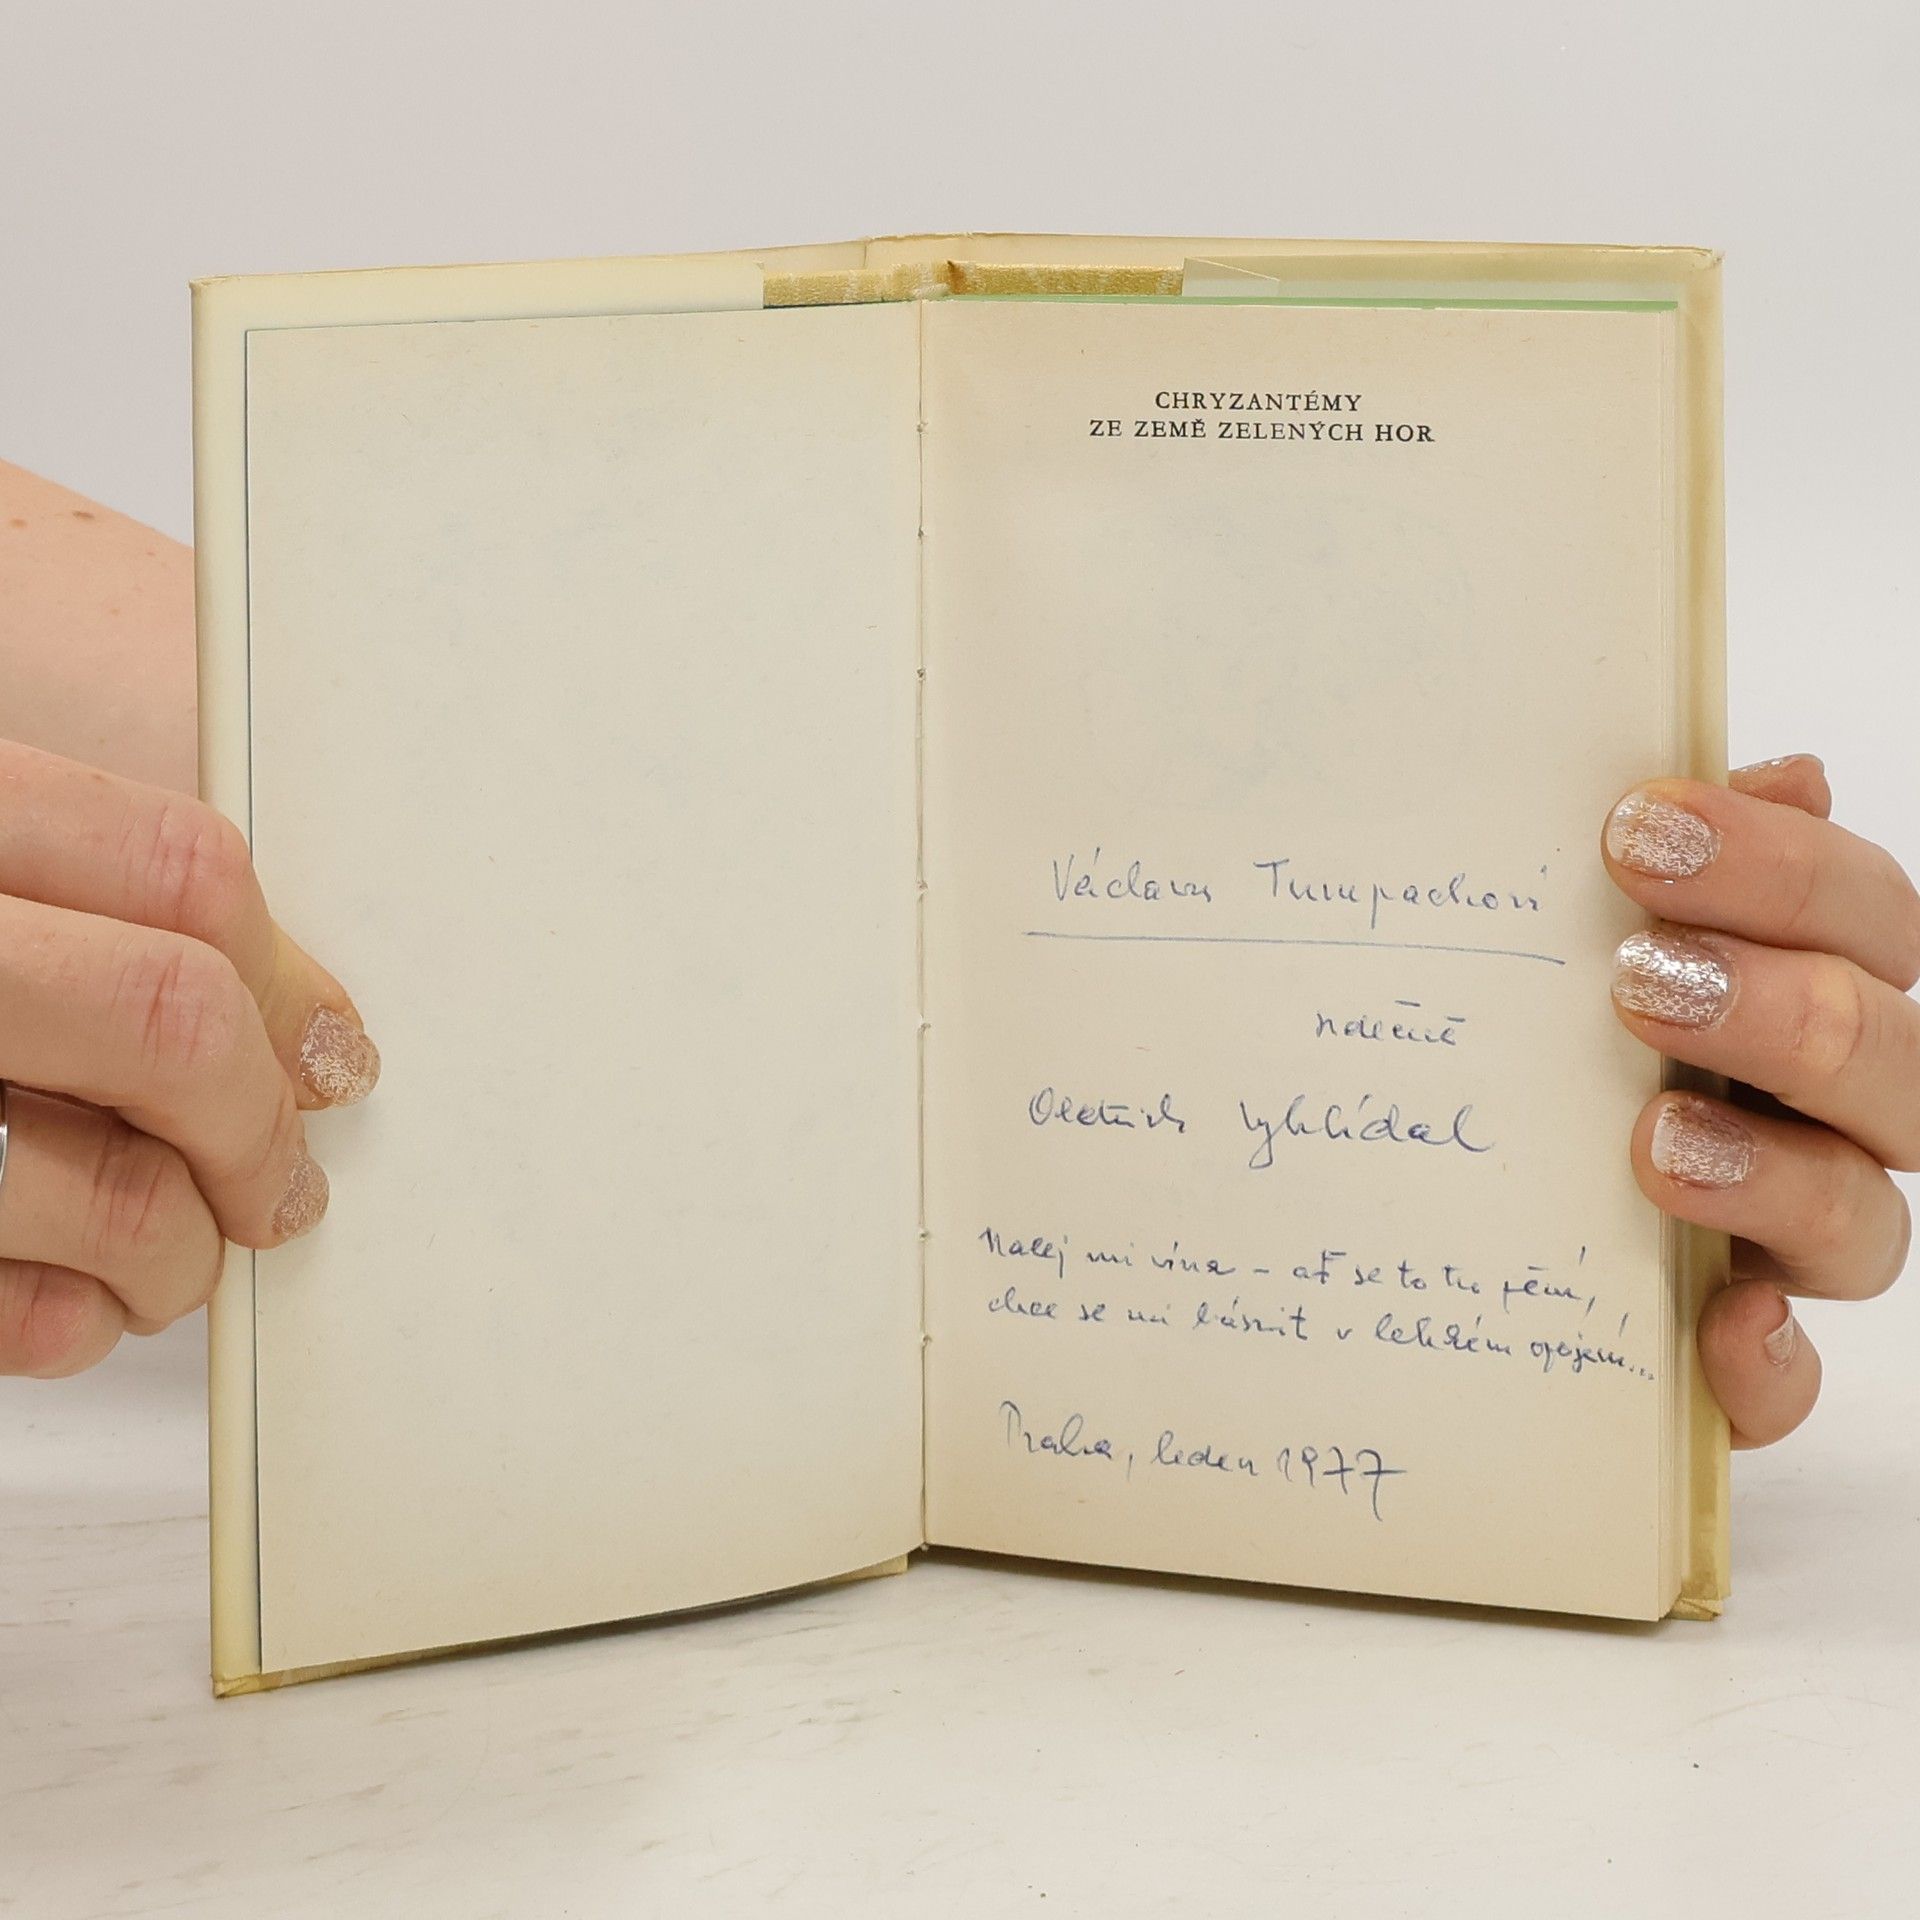 CHRYZANTÉMY
ZE ZEMĚ ZELENÝCH HOR
Václavu Tumpachovi
vděčně
Oldřich Vyhlídal
Nalej mi vína – ať se to tu pění,
chce se mi básnit v lehkém opojení...
Praha, leden 1977